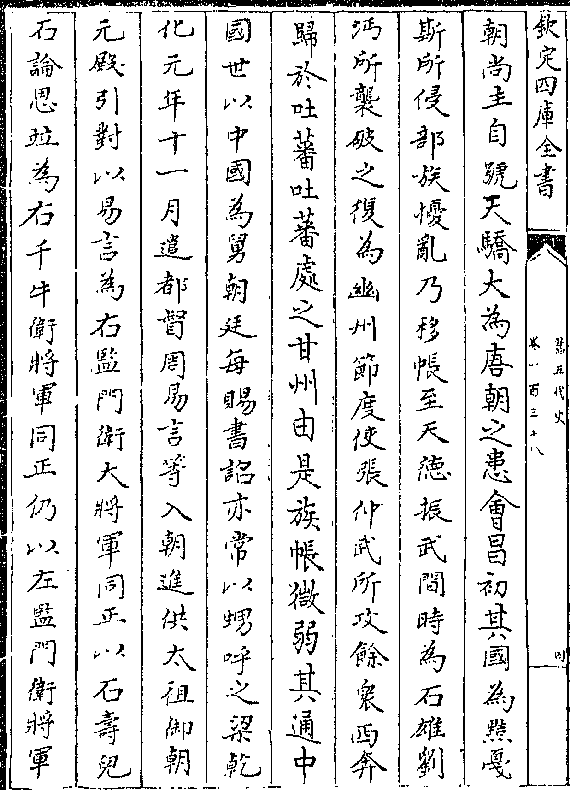 欽定四庫全書
舊五代史
卷一百三十八
朝尚主自號天驕大為唐朝之患會昌初其國為黠戛
斯所侵部族擾亂乃移帳至天德振武間時為石雄劉
沔所襲破之復為幽州節度使張仲武所攻餘衆西奔
歸於吐蕃吐蕃處之甘州由是族帳微弱其後時通中
國世以中國為舅朝廷每賜書詔亦常以甥呼之梁乾
化元年十一月遣都督周易言等入朝進供太祖御朝
元殿引對以易言為右監門衛大將軍同正以石壽兒
石論思竝為右千牛衛將軍同正仍以左監門衛將軍